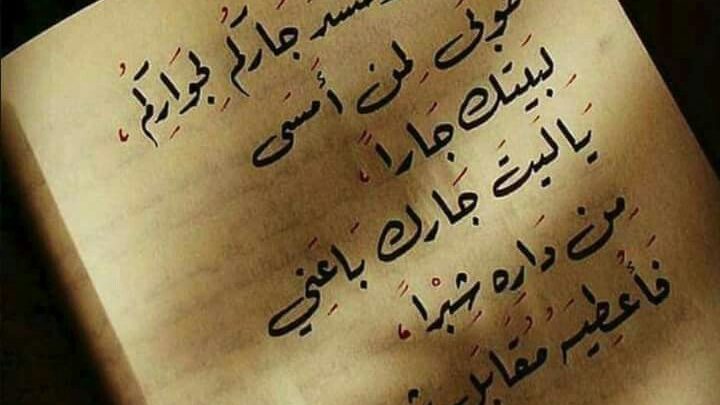 جَارَكُم لِجِوَارِكُمُ،
طُوبَى لِمَن أَمسَى
لِبَيتِكَ جَارا،
يَا لَيتَ جَارَك بَاعَنِي
مِن دَارِه شِبْرًا،
فَأُعْطِيَه مُقَابَل